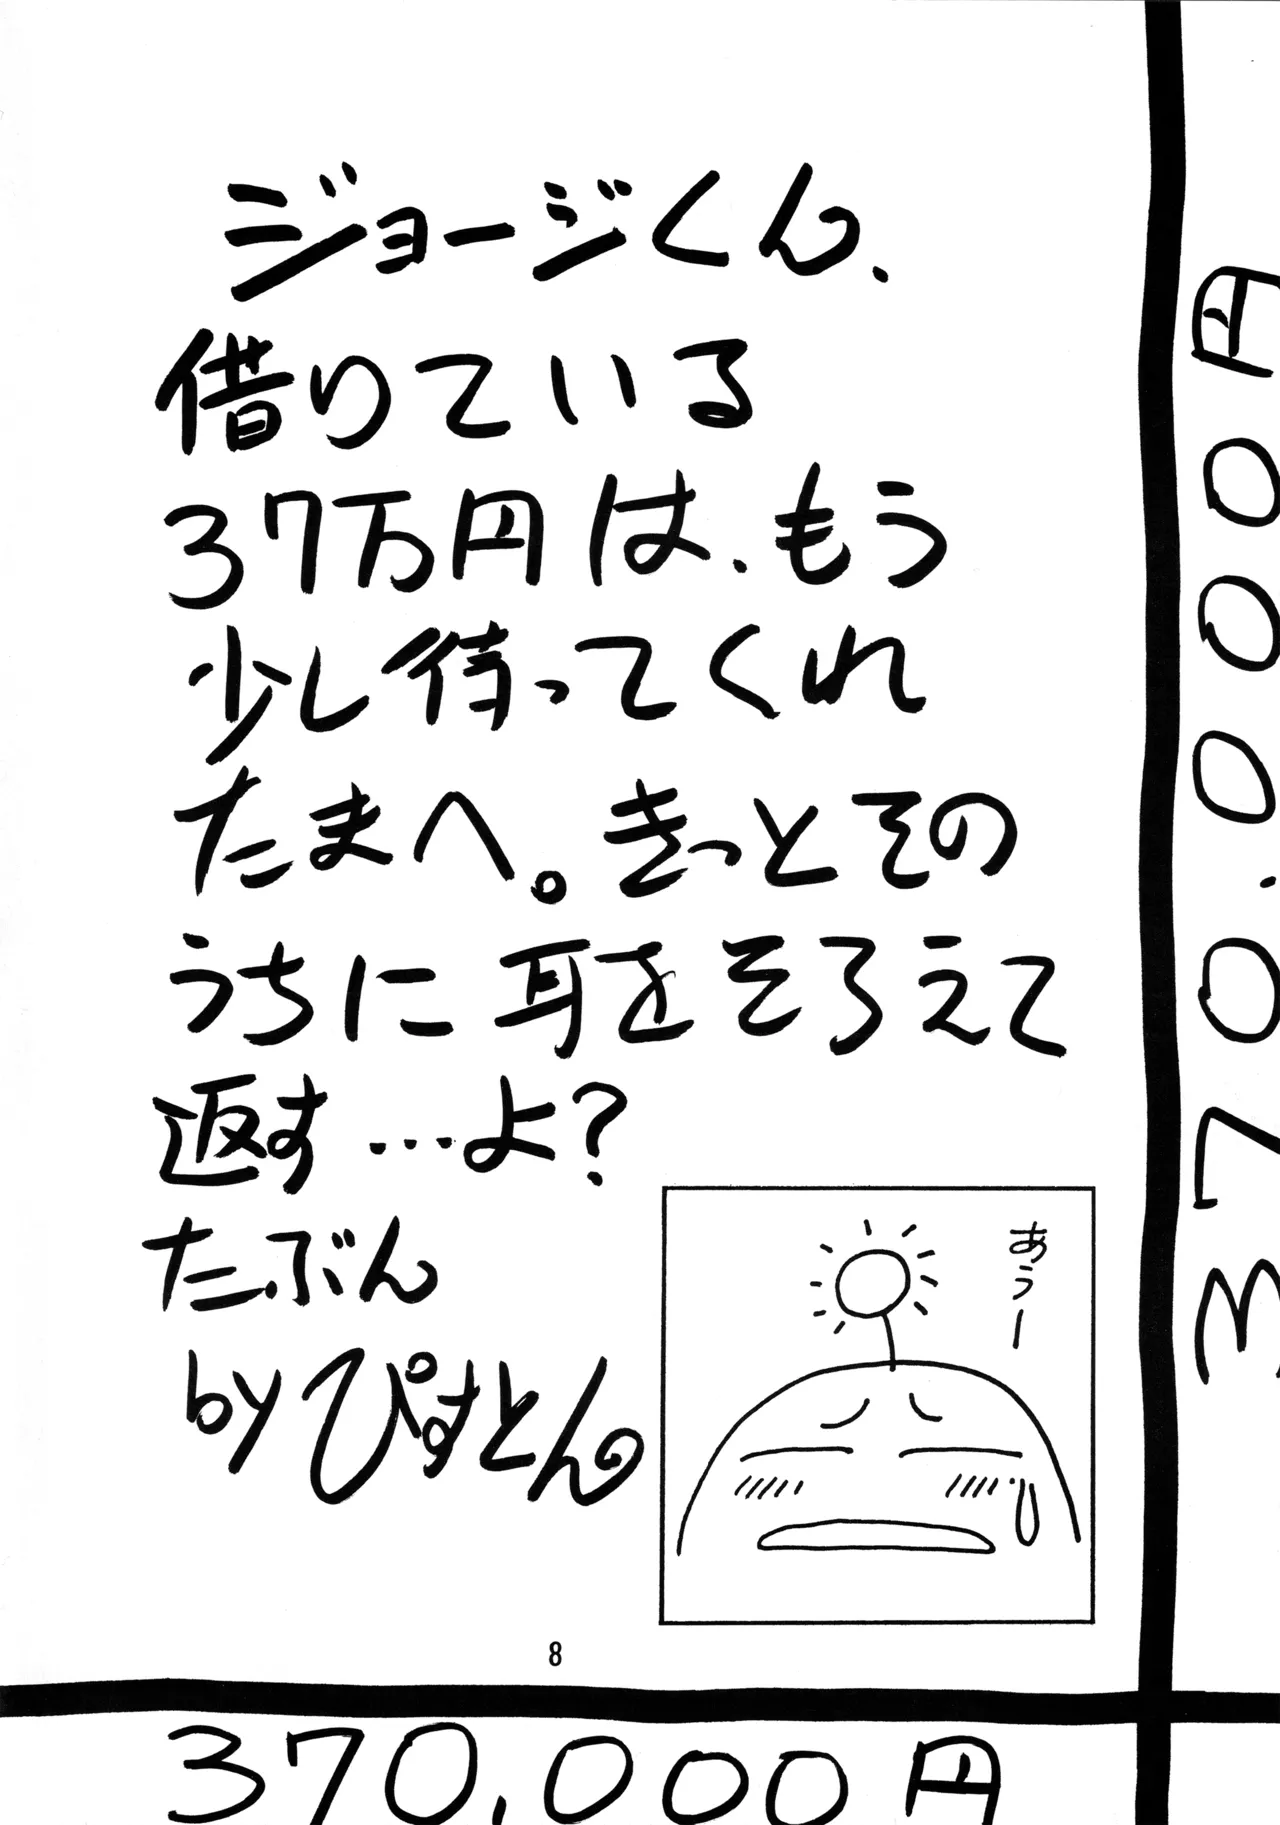 ジョージくん、
借りている
37万円は、もう
少し待ってくれ
たまへ。きっとその
うちに耳をそろえて
返す…よ?
たぶん
byぴすとん
あぅー
8
370,000円
370,000円